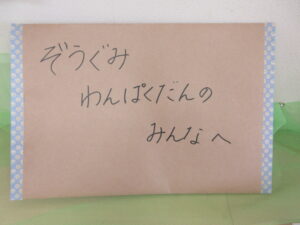 ぞうぐみ
わんぱくだんの
みんなへ